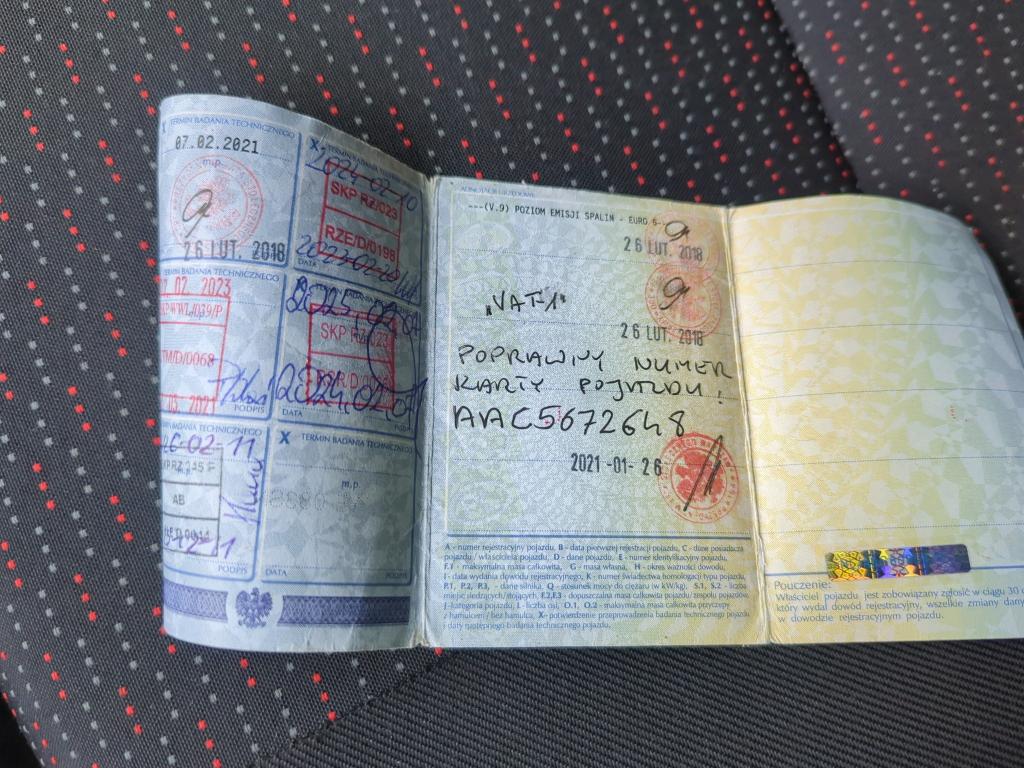 X TERMIN BADANIA TECHNICZNEGO
07.02.2021
m.p.
26 LUT. 2018
TERMIN BADANIA TECHNICZNEGO
02 2023
/D/0068
2021
PODPIS
TERMIN BADANIA TECHNICZNEGO
02-11
m.p.
AB
PODPIS
X TERMIN BADANIA
2024-02-10
SKP RZ/023
RZE/D/0198
DATA
SKP RZ/023
DATA
X TERMIN BADANIA TECHNICZNEGO
m.p.
DATA
PODPIS
ADNOTACJE URZĘDOWE
---(V.9) POZIOM EMISJI SPALIN - EURO 6--
26 LUT. 2018
„VAT-1"
26 LUT. 2018
POPRAWNY NUMER
KARTY POJAZDU!
AAC5672648
2021 -01- 26
A - numer rejestracyjny pojazdu, B - data pierwszej rejestracji pojazdu, C - dane posiadacza
pojazdu / właściciela pojazdu, D - dane pojazdu, E - numer identyfikacyjny pojazdu,
F.1 - maksymalna masa całkowita, G - masa własna, H - okres ważności dowodu,
I - data wydania dowodu rejestracyjnego, K - numer świadectwa homologacji typu pojazdu,
P.1, P.2, P.3, - dane silnika, Q - stosunek mocy do ciężaru (w kW/kg), S.1, S.2 - liczba
miejsc siedzących/stojących, F.2,F.3 - dopuszczalna masa całkowita pojazdu/zespołu pojazdów,
J -kategoria pojazdu, L - liczba osi, O.1, O.2 - maksymalna masa całkowita przyczepy
z hamulcem / bez hamulca, X- potwierdzenie przeprowadzenia badania technicznego pojazdu
i daty następnego badania technicznego pojazdu.
Pouczenie:
Właściciel pojazdu jest zobowiązany zgłosić w ciągu 30
który wydał dowód rejestracyjny, wszelkie zmiany
w dowodzie rejestracyjnym pojazdu.